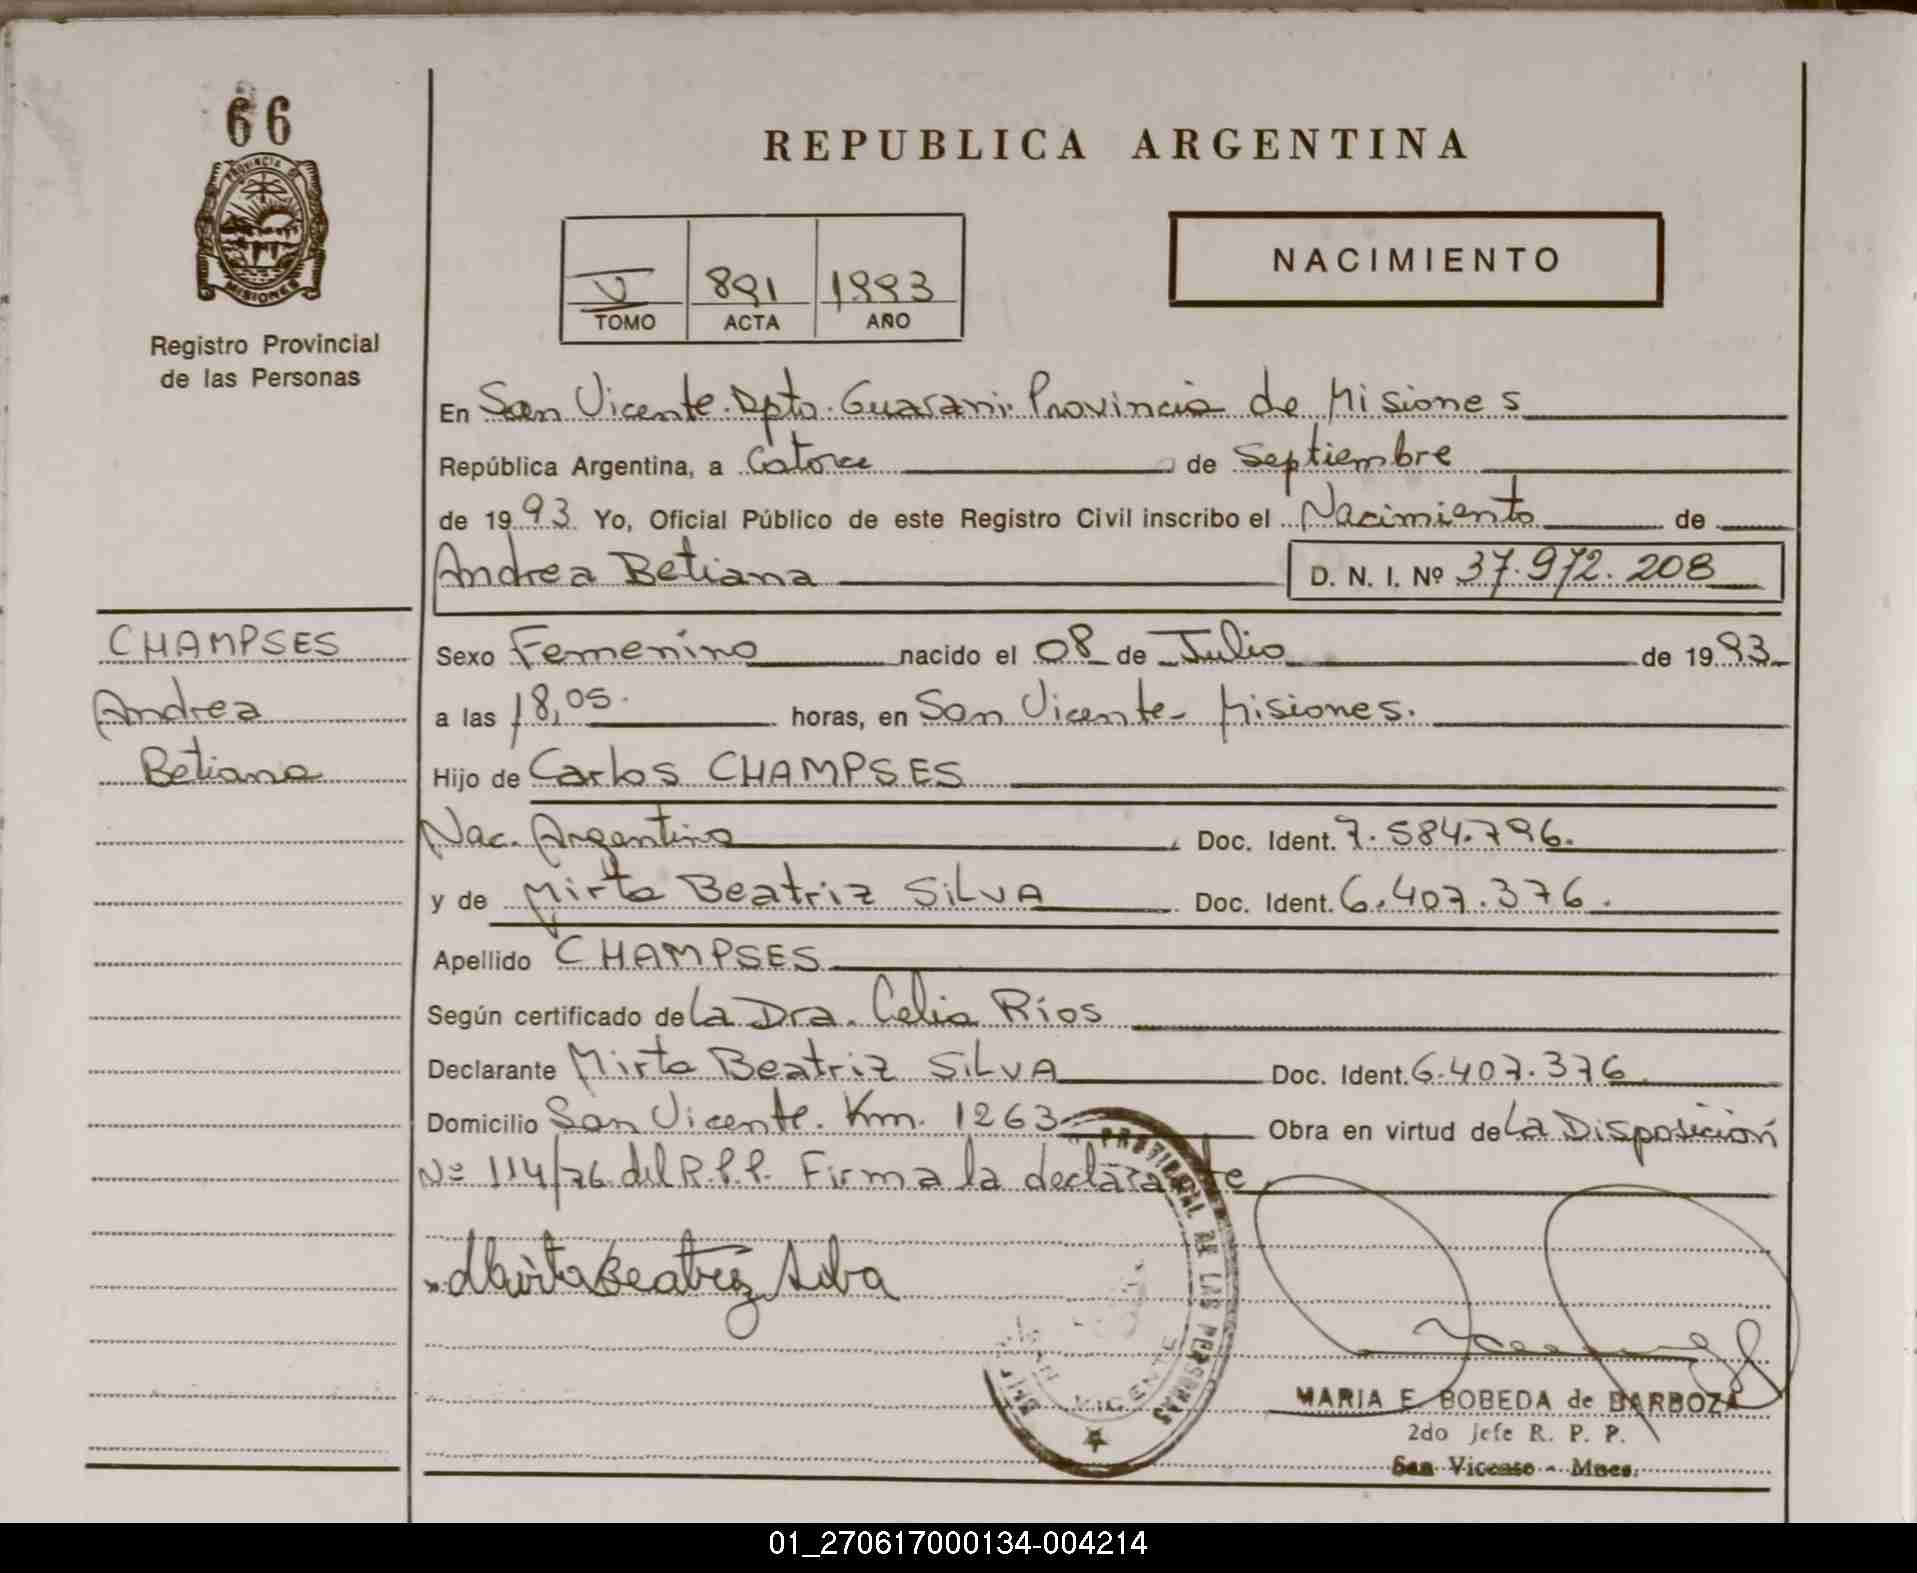 66
PROVINCIA
MISIONES
Registro Provincial
de las Personas
REPUBLICA ARGENTINA
V 891 1993
TOMO ACTA AÑO
NACIMIENTO
En San Vicente. Dpto. Guarani. Provincia de Misiones
República Argentina, a Catorce de Septiembre
de 1993. Yo, Oficial Público de este Registro Civil inscribo el Nacimiento de
Andrea Betiana D. N. I. Nº 37.972.208
CHAMPSES
Andrea
Betiana
Sexo Femenino nacido el 08 de Julio de 1993
a las 18,05. horas, en San Vicente - Misiones.
Hijo de Carlos CHAMPSES
Nac. Argentina Doc. Ident. 7.584.796.
y de Mirta Beatriz SILVA Doc. Ident. 6.407.376.
Apellido CHAMPSES
Según certificado de La Dra. Celia Ríos
Declarante Mirta Beatriz SILVA Doc. Ident. 6.407.376
Domicilio San Vicente. Km. 1263 Obra en virtud de La Disposición
Nº 114/76 del R.P.P. Firma la declarante
Mirta Beatriz Silva
PROVINCIAL DE LAS PERSONAS
SAN VICENTE
MARIA E. BOBEDA de BARBOZA
2do Jefe R. P. P.
San Vicente - Mnes.
01_270617000134-004214